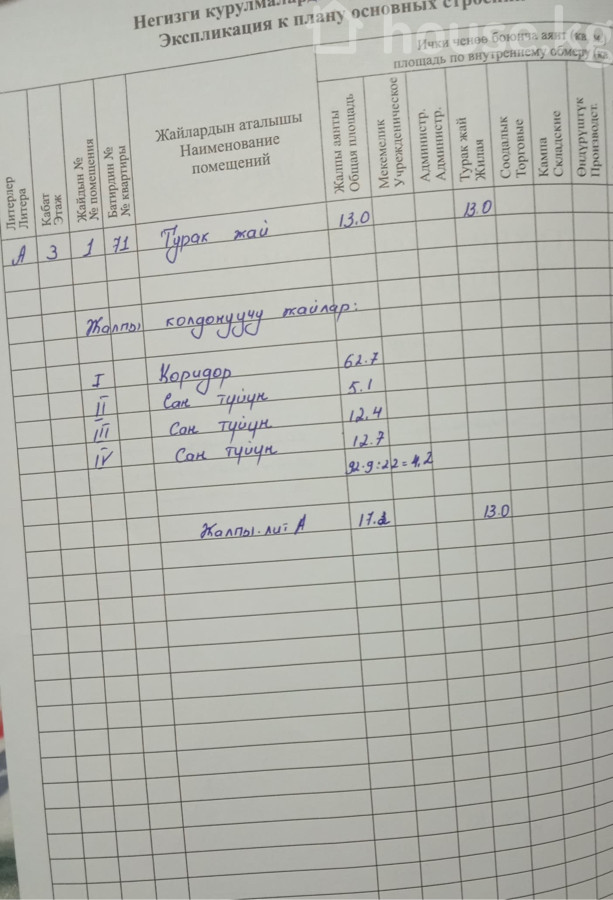 Негизги курулмалард
Экспликация к плану основных строени
house.kg
Ички ченөө боюнча аянт (кв. м)
площадь по внутреннему обмеру (кв.
Литерлер
Литера
Кабат
Этаж
Жайдын №
№ помещения
Батирдин №
№ квартиры
Жайлардын аталышы
Наименование
помещений
Жалпы аянты
Общая площадь
Мекемелик
Учрежденическое
Администр.
Администр.
Турак жай
Жилая
Соодалык
Торговые
Кампа
Складские
Өндүрүштүк
Производст.
А 3 1 71 Турак жай 13.0 13.0
Жалпы колдонууучу жайлар:
I Коридор 62.7
II Сан түйүн 5.1
III Сан түйүн 12.4
IV Сан түйүн 12.7
92.9:22=4,2
Жалпы. лит А 17.2 13.0